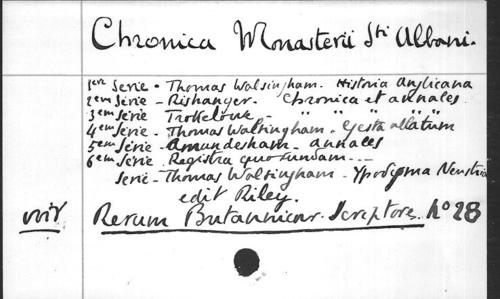 Chronica Monasterii Sti Albani.
1ere Serie - Thomas Walsingham. Historia Anglicana
2em Serie - Rishanger. Chronica et annales
3em Serie Trokelowe - " " "
4em Serie - Thomas Walsingham - Gesta abbatum
5em Serie - Amundesham - annales
6em Serie Registra quorundam ---
Serie - Thomas Walsingham - Ypodigma Neustria
edit Riley.
voir Rerum Britannicar. Scriptores No 28